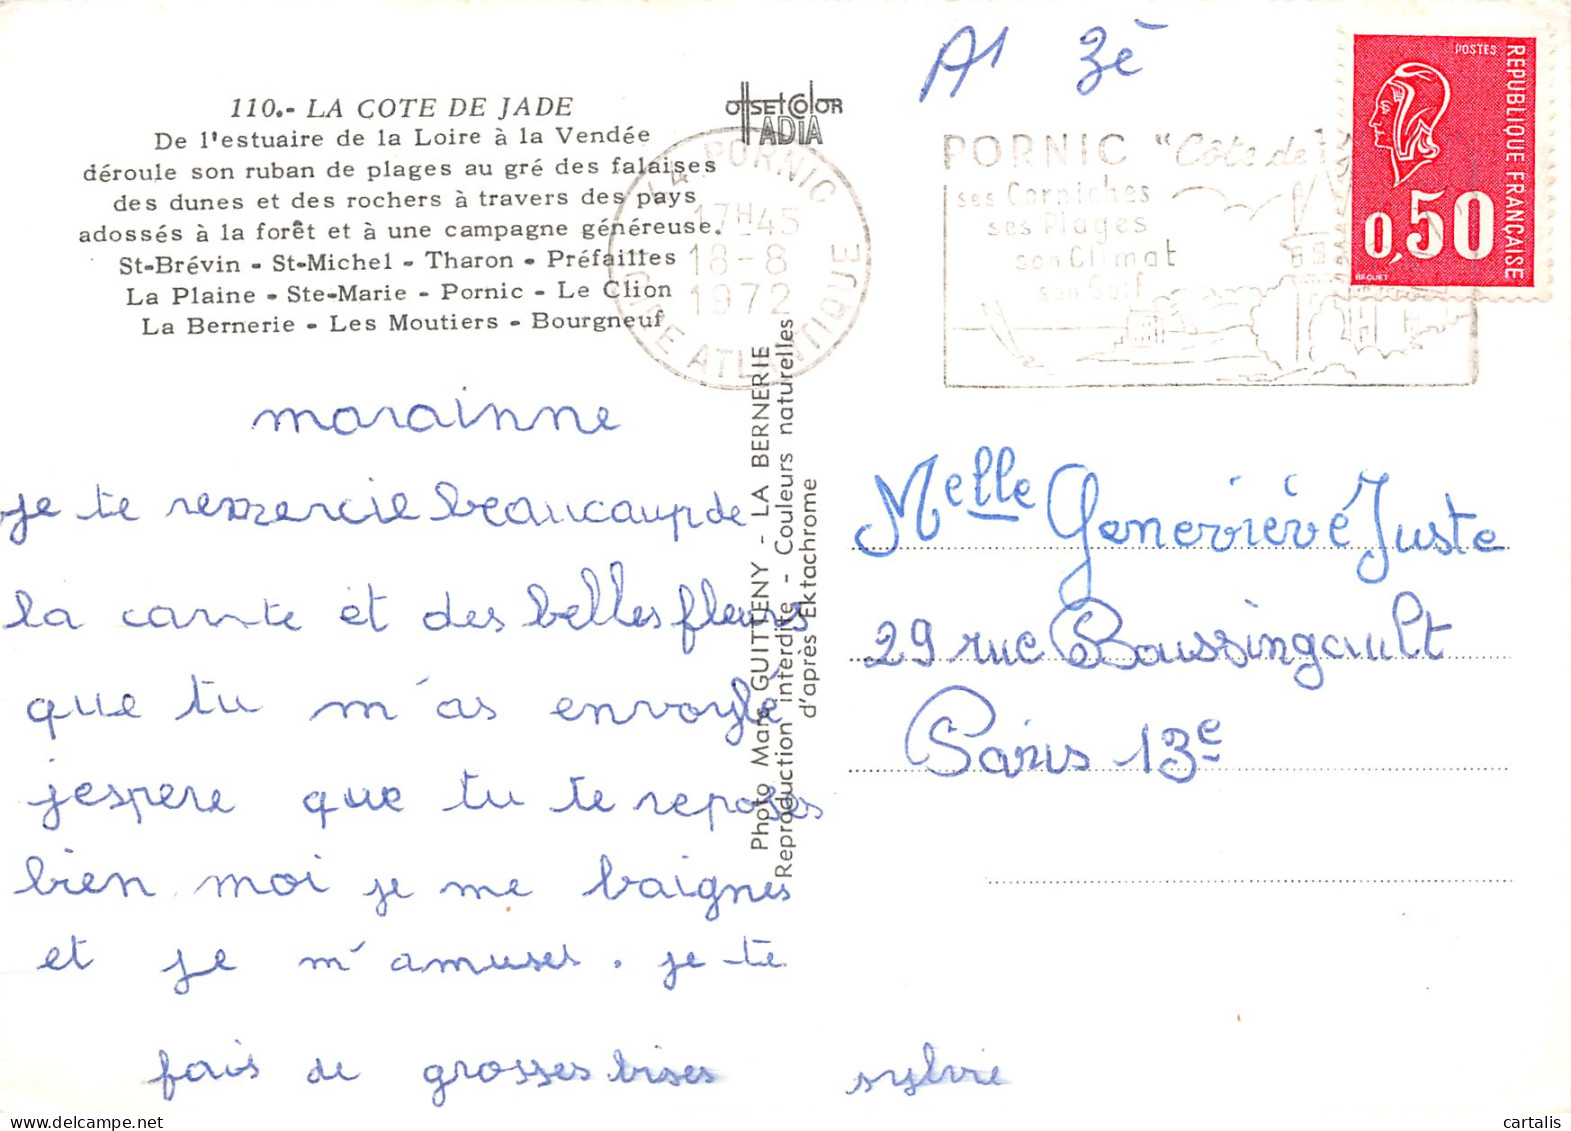 110.- LA COTE DE JADE
De l'estuaire de la Loire à la Vendée
déroule son ruban de plages au gré des falaises
des dunes et des rochers à travers des pays
adossés à la forêt et à une campagne généreuse.
St-Brévin - St-Michel - Tharon - Préfailles
La Plaine - Ste-Marie - Pornic - Le Clion
La Bernerie - Les Moutiers - Bourgneuf
offsetcolor
ADIA
A1 3è
44 PORNIC
17H45
18-8
1972
LOIRE ATLANTIQUE
PORNIC "Côte de
ses Corniches
ses Plages
son Climat
son Golf
POSTES
REPUBLIQUE FRANÇAISE
0,50
BEQUET
marainne
je te remercie beaucaup de
la carte et des belles fleurs
que tu m'as envoylé
j'espere que tu te reposes
bien moi je me baignes
et je m'amuses. je te
fais de grosses bises sylvie
Photo Marc GUITTENY - LA BERNERIE
Reproduction interdite - Couleurs naturelles
d'après Ektachrome
Melle Geneviève Juste
29 rue Boussingault
Paris 13e
cartalis